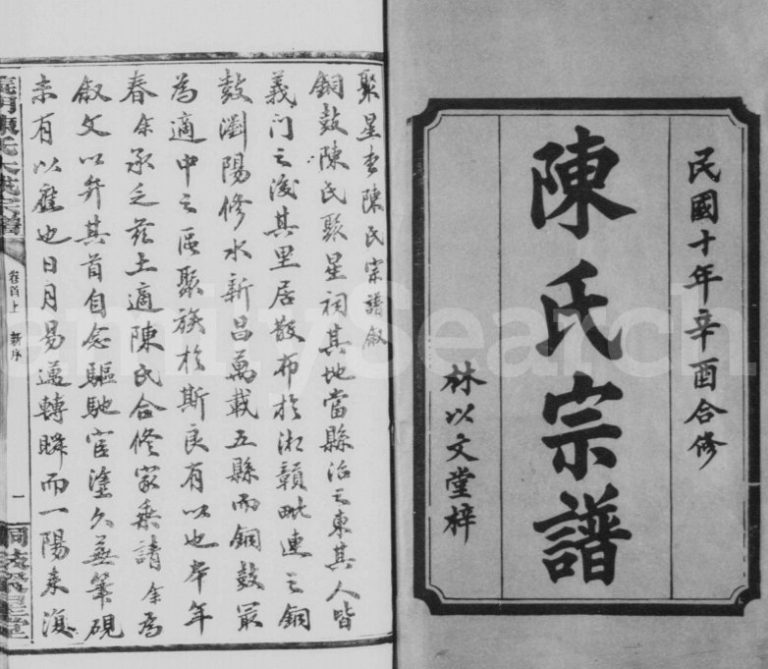 民國十年辛酉合修
陳氏宗譜
林以文堂梓
聚星堂陳氏宗譜叙
銅鼓陳氏聚星祠其地當縣治之東其人皆
義门之後其里居散布於湘贛毗連之銅
鼓瀏陽修水新昌萬載五縣而銅鼓最
為適中之區聚族於斯良有以也本年
春余承乏茲土適陳氏合修家乘請余為
叙文以弁其首自念驅馳宦塗久無筆硯
未有以應也日月易邁轉瞬而一陽來復
義門陳氏大成宗譜
卷首上 新序
一
銅鼓聚星堂
FamilySearch